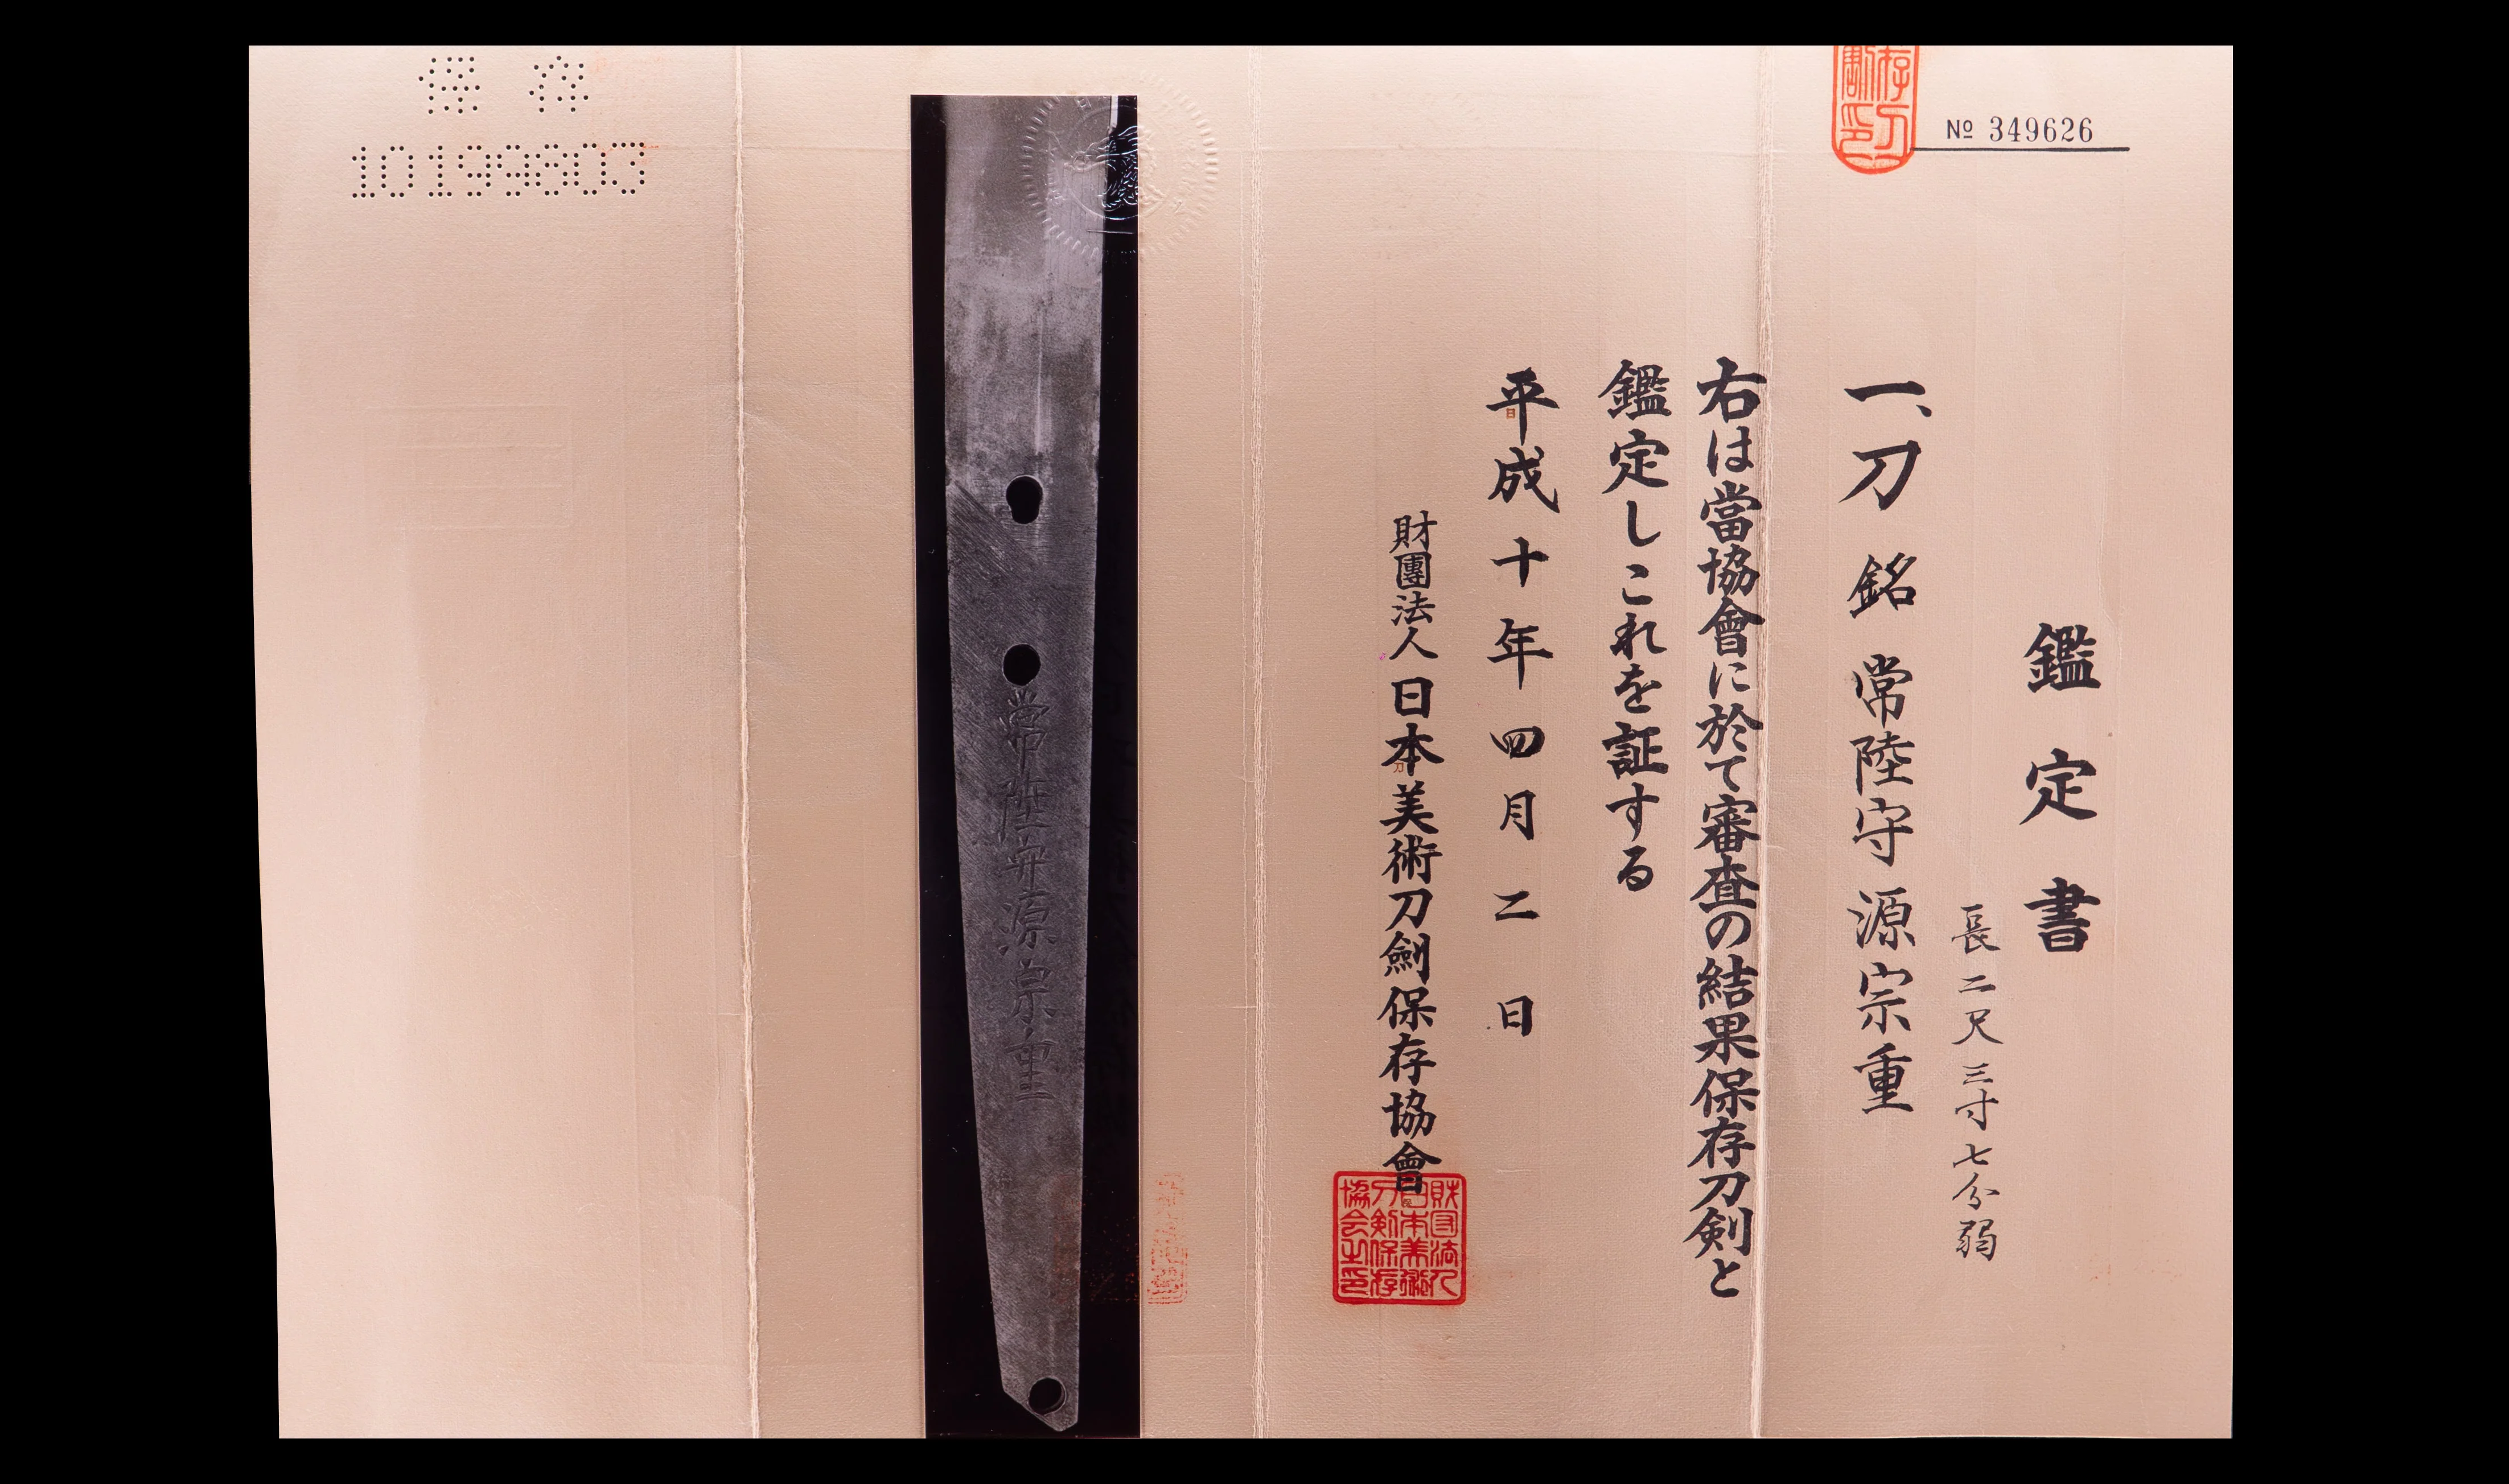 No 349626
鑑定書
長二尺三寸七分弱
一、刀 銘 常陸守源宗重
右は當協會に於て審査の結果保存刀剣と
鑑定しこれを証する
平成十年四月二日
財團法人日本美術刀劍保存協會
財団法人
日本美術
刀剣保存
協会之印
常陸守源宗重
保存
10199803